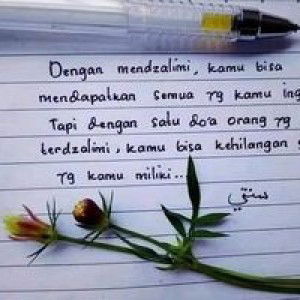 Dengan mendzalimi, kamu bisa
mendapatkan semua yg kamu ing
Tapi dengan satu do'a orang yg
terdzalimi, kamu bisa kehilangan s
yg kamu miliki...